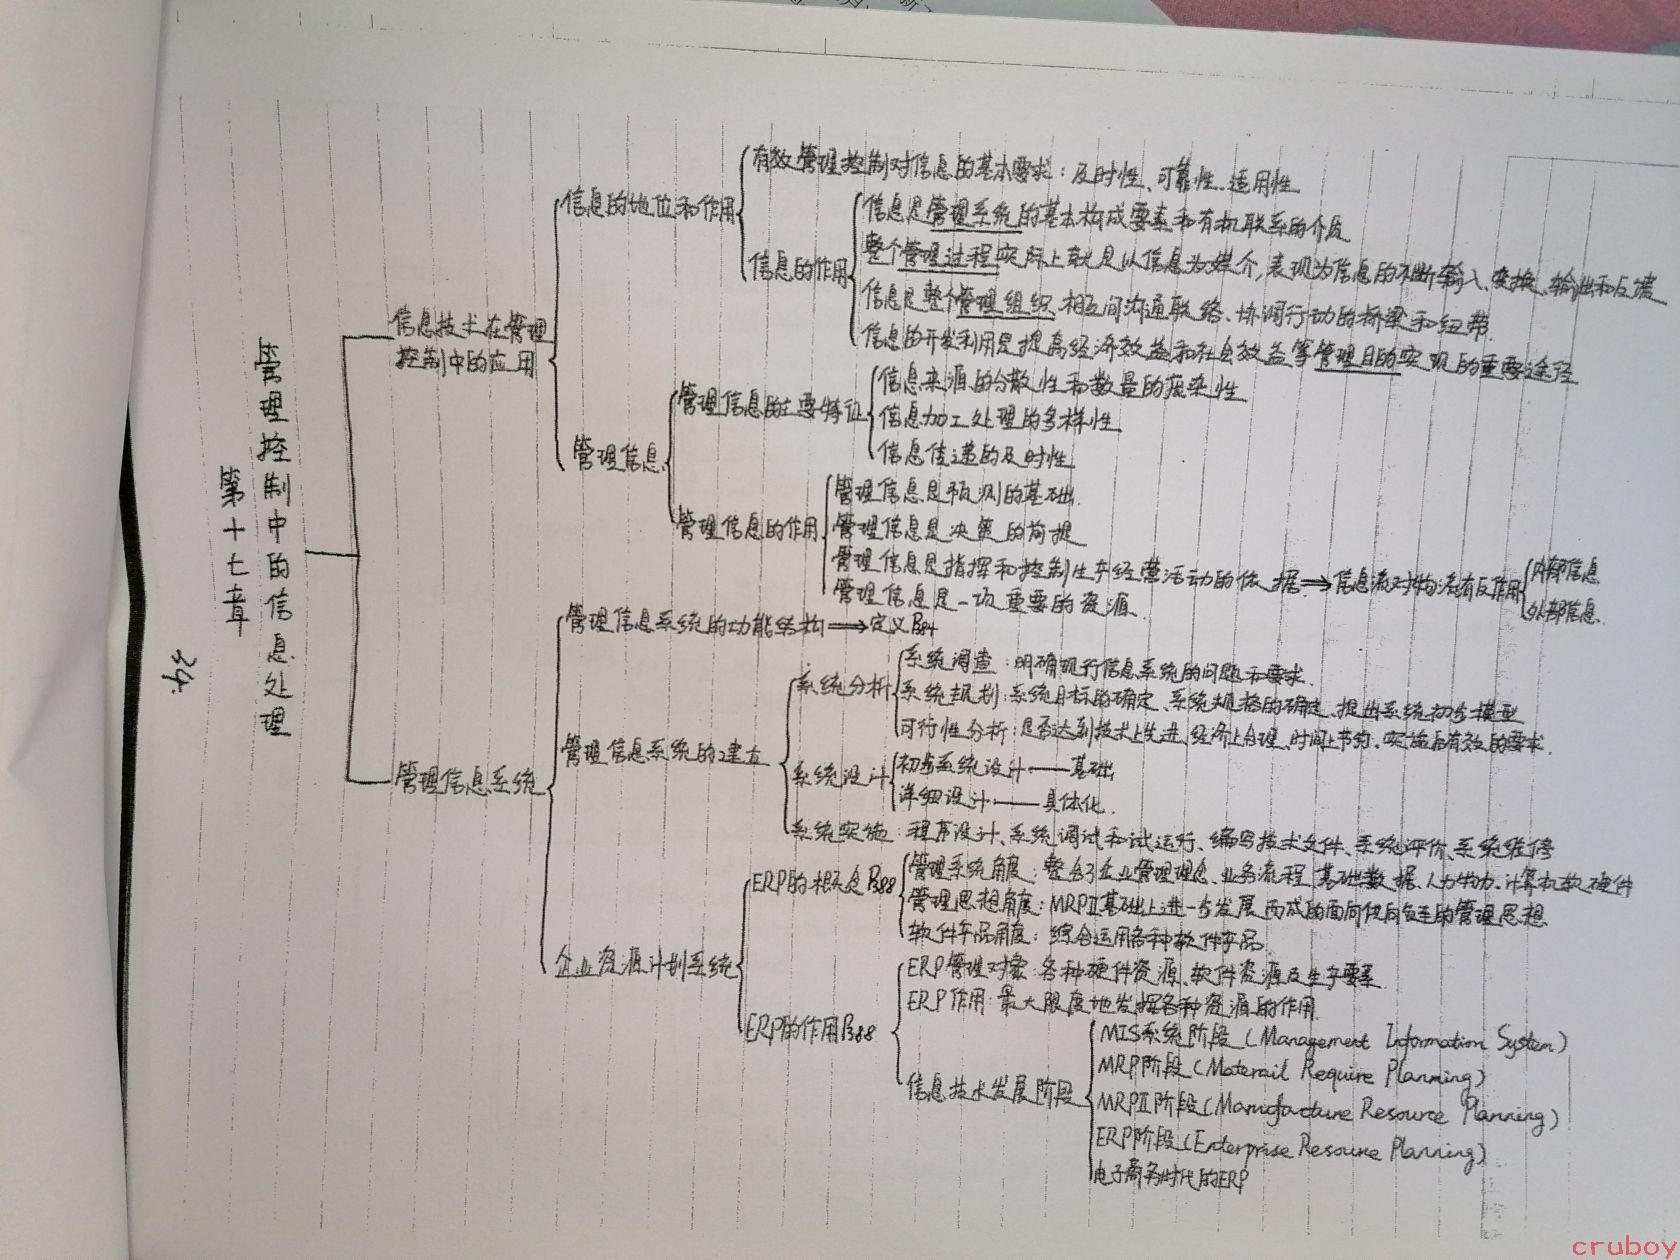 第十七章
管理控制中的信息处理
34.
信息技术在管理
控制中的应用
信息的地位和作用
有效管理控制对信息的基本要求：及时性、可靠性、适用性
信息的作用
信息是管理系统的基本构成要素和有机联系的介质
整个管理过程实际上就是以信息为媒介,表现为信息的不断输入、变换、输出和反馈
信息是整个管理组织.相互间沟通联络、协调行动的桥梁和纽带.
信息的开发利用是提高经济效益和社会效益等管理目的实现的重要途径
管理信息
管理信息的主要特征
信息来源的分散性和数量的庞杂性
信息加工处理的多样性
信息传递的及时性
管理信息的作用
管理信息是预测的基础.
管理信息是决策的前提
管理信息是指挥和控制生产经营活动的依据⟹信息流对物流有反作用
内部信息
外部信息.
管理信息是一项重要的资源.
管理信息系统
管理信息系统的功能结构⟹定义P384
管理信息系统的建立
系统分析
系统调查：明确现行信息系统的问题和要求.
系统规划：系统目标的确定、系统规格的确定、提出系统初步模型
可行性分析：是否达到技术上先进、经济上合理、时间上节约、实施后有效的要求.
系统设计
初步系统设计——基础
详细设计——具体化.
系统实施：程序设计、系统调试和试运行、编写技术文件、系统评价、系统维修
企业资源计划系统
ERP的概念P388
管理系统角度：整合了企业管理理念、业务流程、基础数据、人力物力、计算机软硬件
管理思想角度：MRPⅡ基础上进一步发展而成的面向供应链的管理思想
软件产品角度：综合运用各种软件产品
ERP的作用P388
ERP管理对象：各种硬件资源、软件资源及生产要素
ERP作用：最大限度地发挥各种资源的作用.
信息技术发展阶段
MIS系统阶段（Management Information System）
MRP阶段（Materail Require Planning）
MRPⅡ阶段（Manufacture Resource Planning）
ERP阶段（Enterprise Resource Planning）
电子商务时代的ERP
cruboy